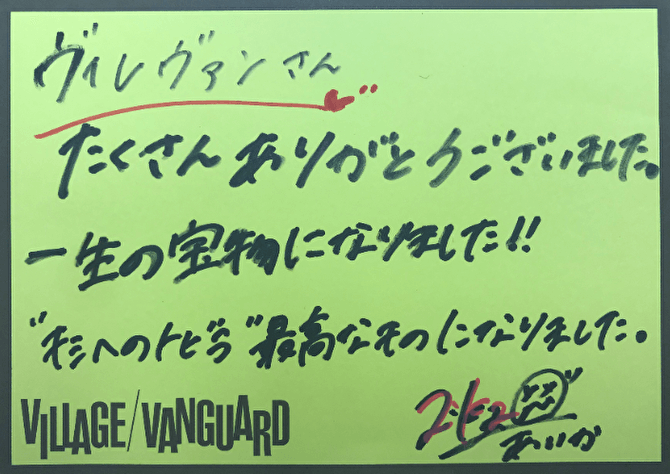 ヴィレヴァンさん
たくさんありがとうございました。
一生の宝物になりました!!
"キミへのトビラ"最高なものになりました。
VILLAGE/VANGUARD
あいか